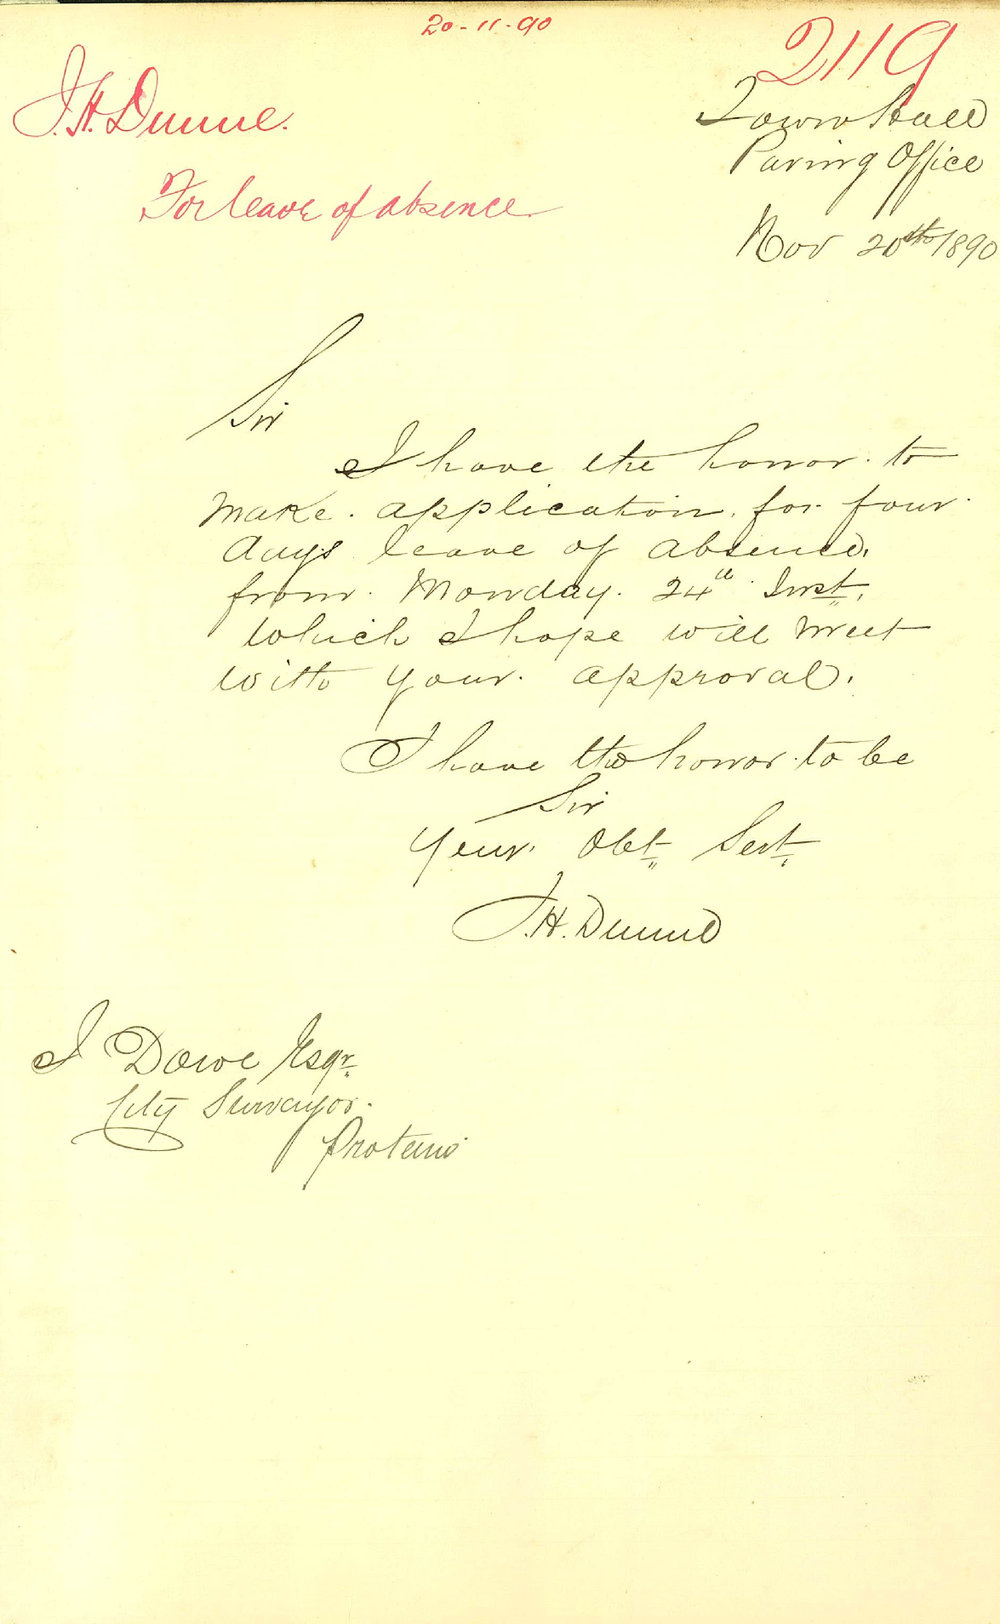 20-11-90
2119
J.H. Dunne.
For leave of absence
Town Hall
Paving Office
Nov 20th 1890
Sir
I have the honor to
make application for four
days leave of absence,
from Monday 24th Inst,
which I hope will meet
with your approval.
I have the honor to be
Sir
Your Obt Sert
J.H. Dunne
J Dowe Esqr
City Surveyor
Protem